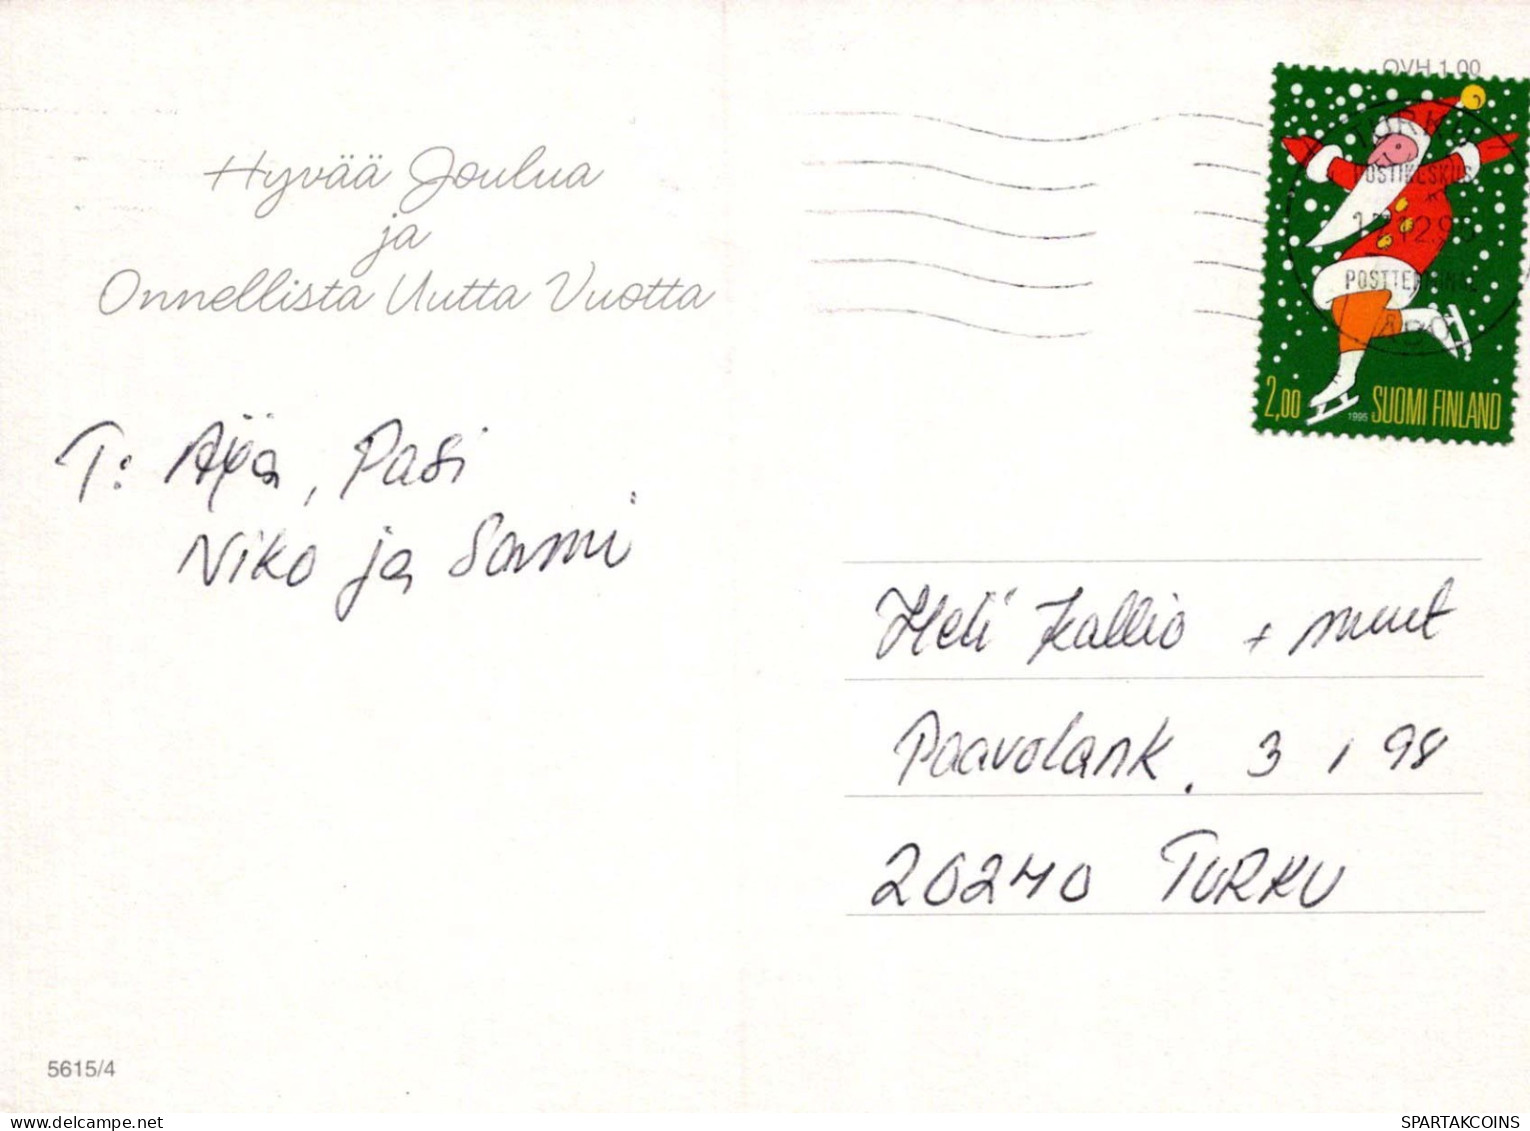 Hyvää Joulua
ja
Onnellista Uutta Vuotta
T: Aija, Pasi
Niko ja Sami
5615/4
OVH 1.00
TURKU
POSTIKESKUS
POSTTERMINAL
ÅBO
2,00 1995 SUOMI FINLAND
Heli Kallio + muut
Paavolank. 3 I 98
20240 TURKU
delcampe.net
SPARTAKCOINS